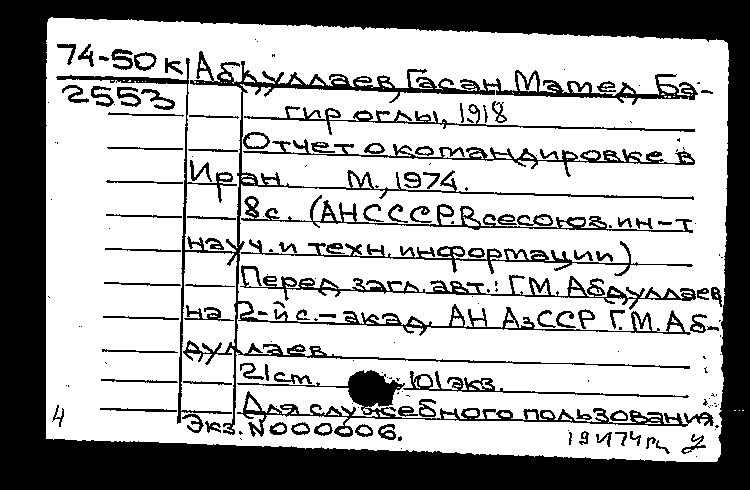 74-50к Абдуллаев, Гасан Мамед Ба-
2553
гир оглы, 1918
Отчет о командировке в
Иран. М., 1974.
8с. (АН СССР. Всесоюз. ин-т
науч. и техн. информации)
Перед загл. авт.: Г.М. Абдуллаев,
на 2-й с. - акад. АН АзССР Г.М. Аб-
дуллаев.
21 ст. 101 экз.
Для служебного пользования.
Экз. N000006.
4